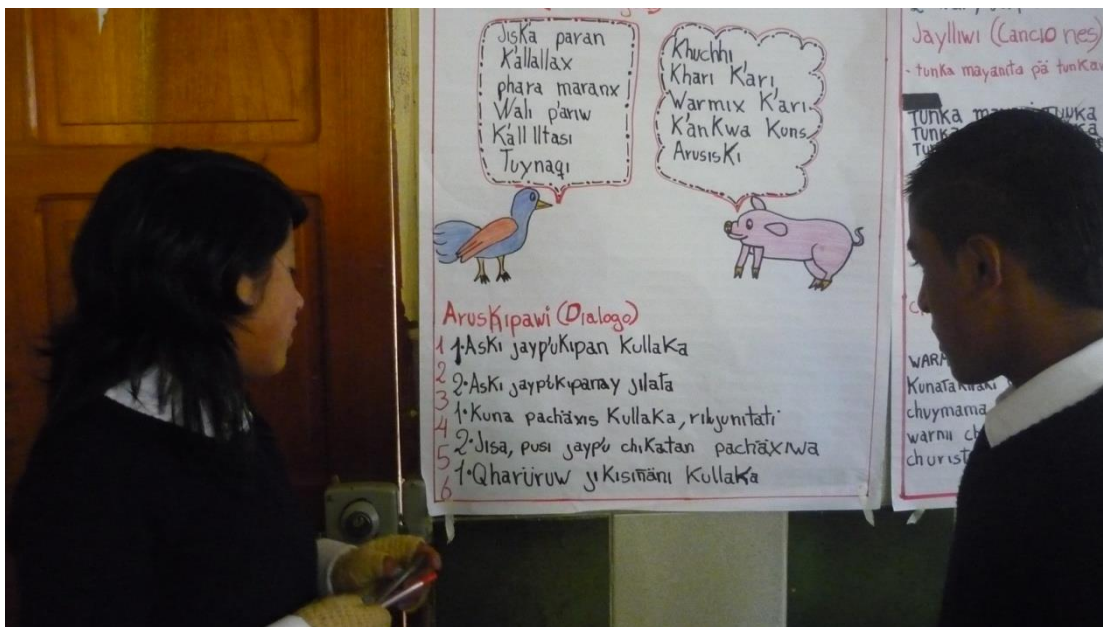 Jiska paran
K'allallax
phara maranx
Wali p'ariw
K'all lltasi
Tuynaqi
Khuchhi
Khari K'ari
Warmix K'ari.
K'anKwa Kuns
ArusisKi
ArusKipawi (Dialogo)
1 1.AsKi jayp'uKipan KullaKa
2 2.AsKi jayp'uKipanay jilata
3 1.Kuna pachäxis KullaKa, rilujunitati
4 2.Jisa, pusi jayp'u chiKatan pachäxiwa
5 1.Qharüruw jiKisiñäni KullaKa
6
Jaylliwi (Canciones)
- tunka mayanita pä tunKa
Tunka
Tunka
WARA
Kunata
chuymama
warmi
churist